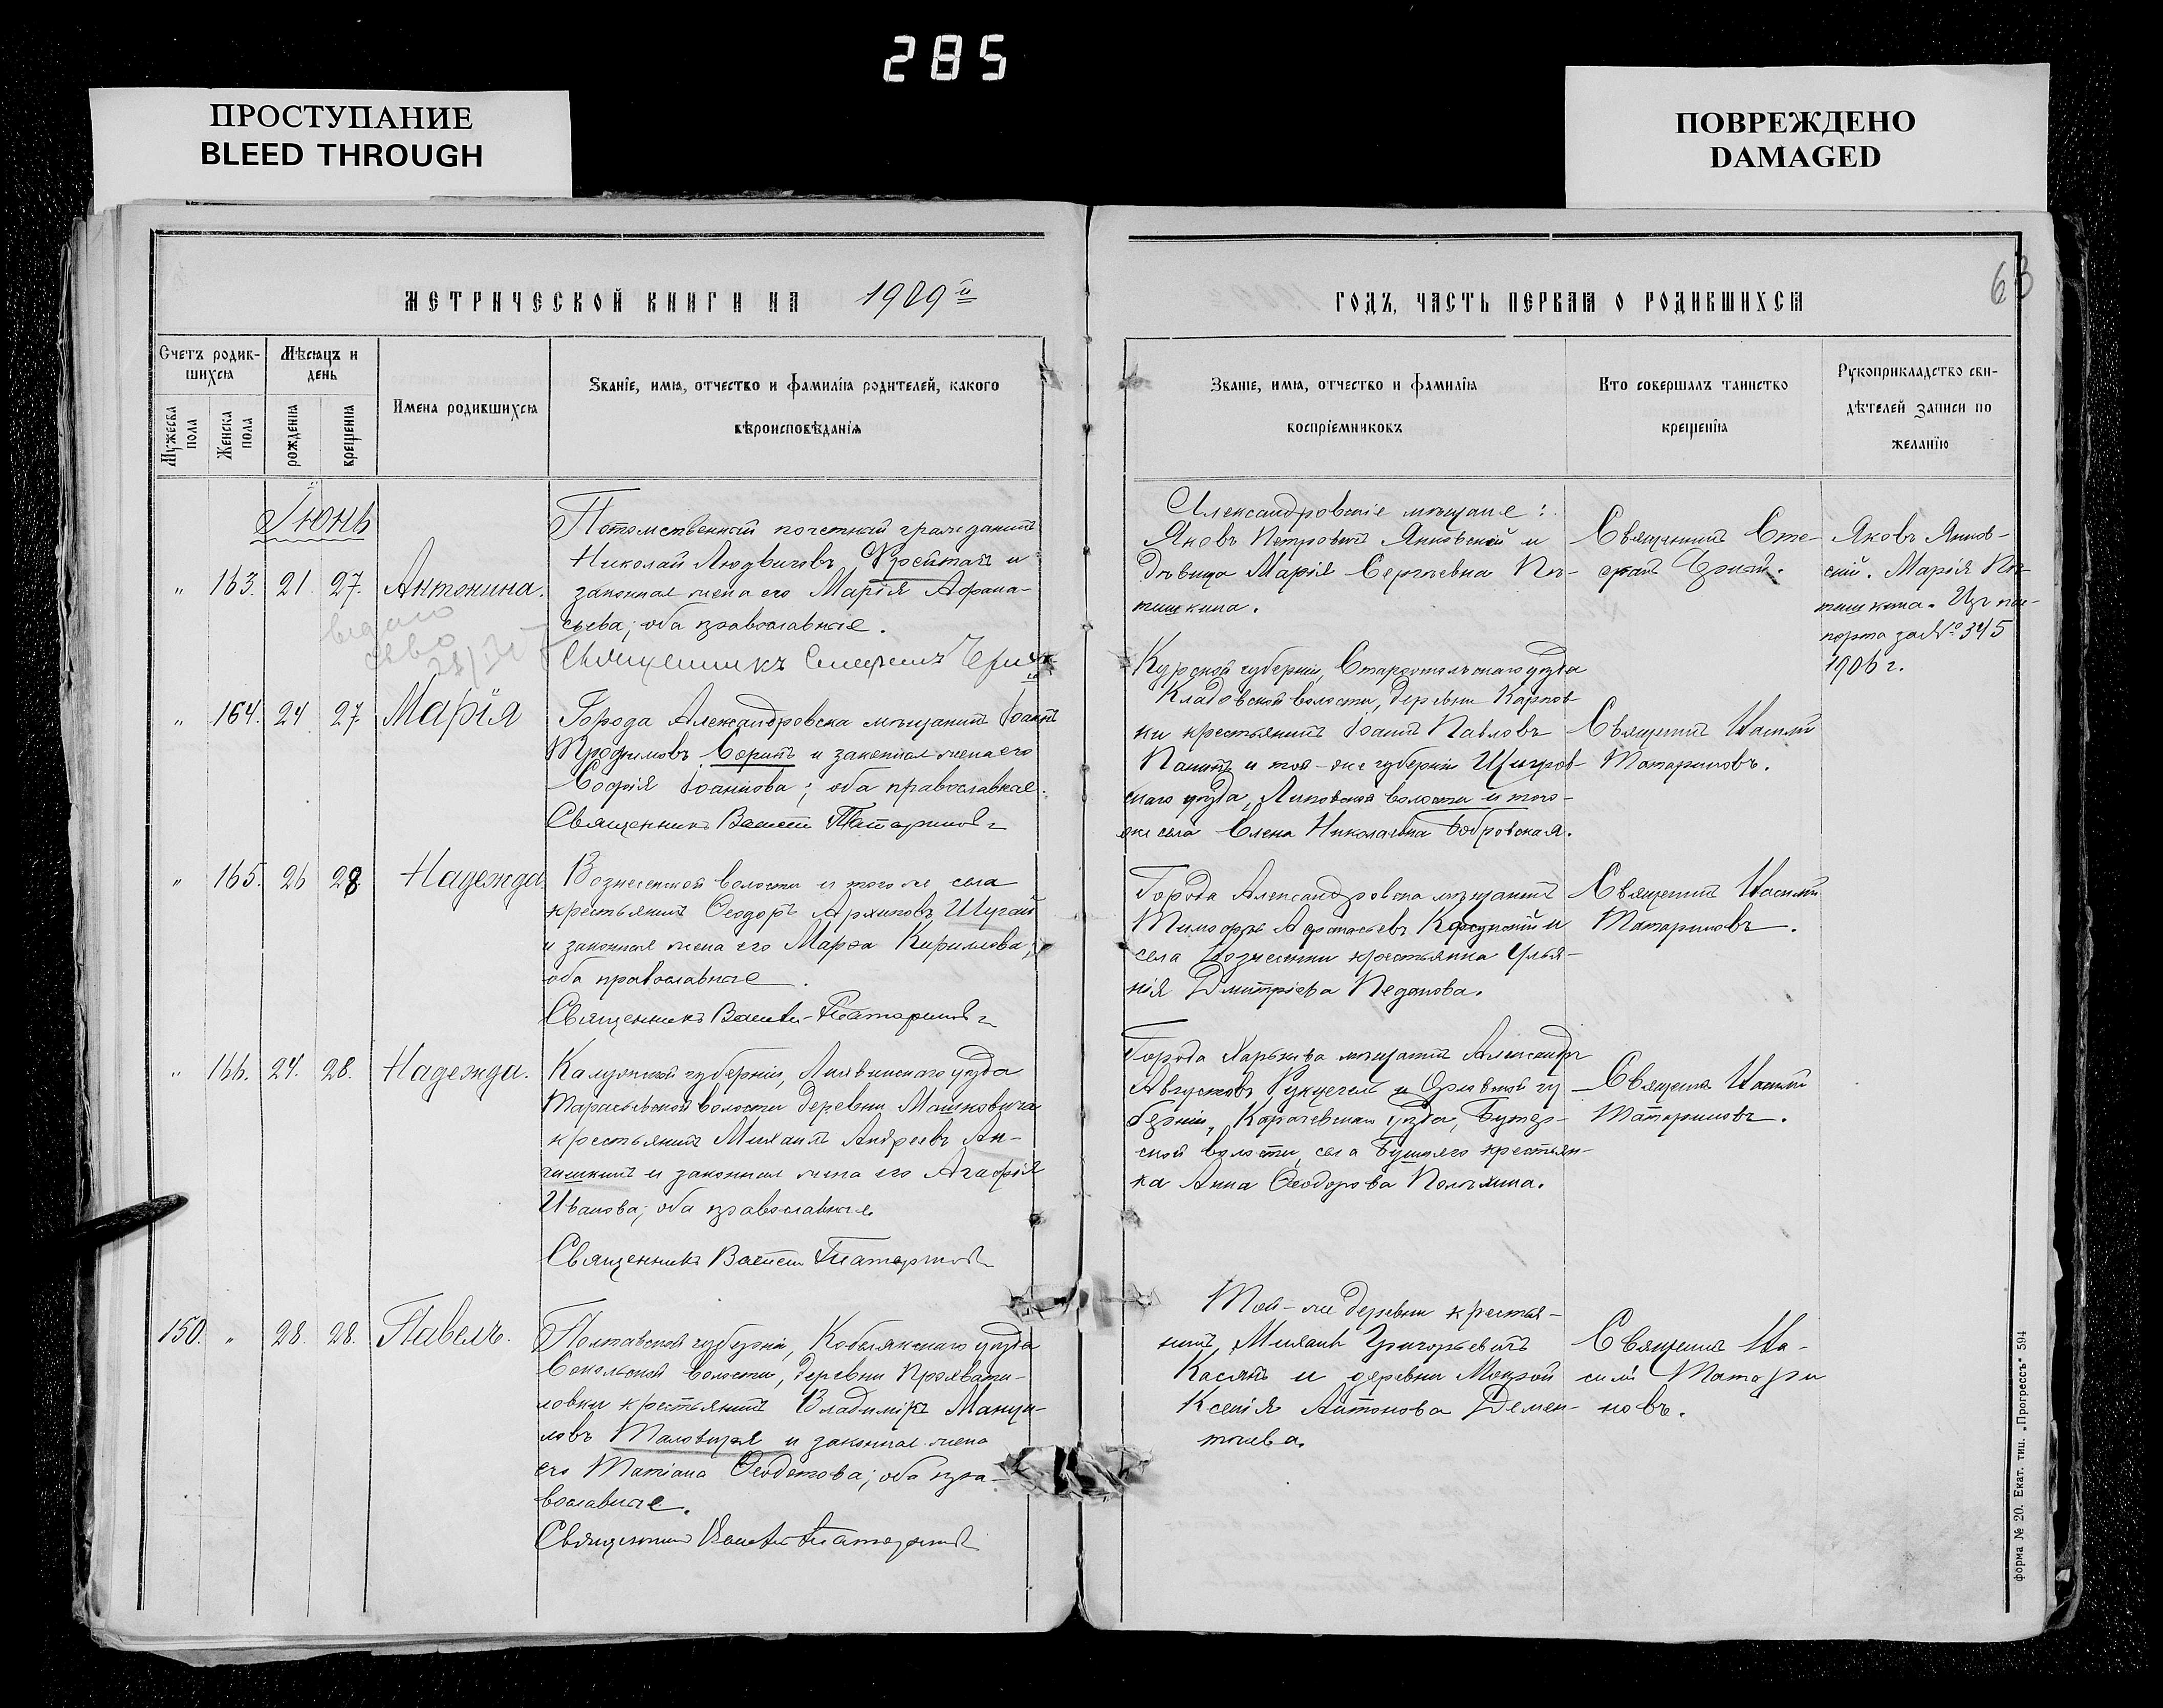 285
ПРОСТУПАНИЕ
BLEED THROUGH
ПОВРЕЖДЕНО
DAMAGED
МЕТРИЧЕСКОЙ КНИГИ НА 1909й
Счетъ родившихся
Мужеска пола
Женска пола
Мѣсяцъ и день
рожденія
крещенія
Имена родившихся
Званіе, имя, отчество и фамилія родителей, какого
вѣроисповѣданія
Іюнь
" 163. 21. 27. Антонина.
Потомственный почетный гражданинъ
Николай Людвиговъ и
законная жена его Марія Афана-
сьева; оба православные.
Священникъ
" 164. 24 27 Марія
Города Александровска мѣщанинъ Іоаннъ
Трофимовъ Серитъ и законная жена его
Софія Іоаннова; оба православные.
Священникъ Василій Татариновъ
" 165. 26 28 Надежда
Вознесенской волости и того же села
крестьянинъ Ѳеодоръ Архиповъ Шугай
и законная жена его Марѳа Кириллова;
оба православные.
Священникъ Василій Татариновъ
" 166. 24. 28. Надежда.
Калужской губерніи, Лихвинскаго уѣзда
волости деревни Машковича
крестьянинъ Михаилъ Андреевъ Ан-
и законная жена его Агафія
Иванова; оба православные
Священникъ Василій Татариновъ
150. " 28. 28. Павелъ.
Полтавской губерніи, Кобелякскаго уѣзда
Сокольской волости, деревни Прохвати-
ловки крестьянинъ Владиміръ Мануи-
ловъ Таловиря и законная жена
его Татіана Ѳеодотова; оба пра-
вославные.
Священникъ Василій Татариновъ
ГОДЪ, ЧАСТЬ ПЕРВАЯ О РОДИВШИХСЯ
63
Званіе, имя, отчество и фамилія
воспріемниковъ
Кто совершалъ таинство
крещенія
Рукоприкладство сви-
дѣтелей записи по
желанію
Александровскіе мѣщане:
Яковъ Петровичъ Янковскій и
дѣвица Марія Сергѣевна Пѣ-
тишкина.
Священникъ Сте-
фанъ
Яковъ Янков-
скій. Марія Пѣ-
тишкина. Изъ пас-
порта за № 345
1906 г.
Курской губерніи, Старооскольскаго уѣзда
Кладовской волости, деревни Карпов-
ки крестьянинъ Іоаннъ Павловъ
и той-же губерніи Щигров-
скаго уѣзда, Липовской волости и того-
же села Елена Николаевна Бобровская.
Священникъ Василій
Татариновъ.
Города Александровска мѣщанинъ
Тимофей Афанасьевъ и
села Вознесенки крестьянка Улья-
нія Дмитріева Педанова.
Священникъ Василій
Татариновъ.
Города Харькова мѣщанинъ Александръ
Августовъ и Орловской гу-
берніи, Карачевскаго уѣзда,
ской волости, села крестьян-
ка Анна Ѳеодорова Полѣхина.
Священникъ Василій
Татариновъ.
Той-же деревни крестья-
нинъ Михаилъ Григорьевичъ
Касянъ и деревни Мокрой
Ксенія Антонова Демен-
тьева.
Священникъ Ва-
силій Татари
новъ.
форма № 20. Екат. тип. „Прогрессъ“ 594